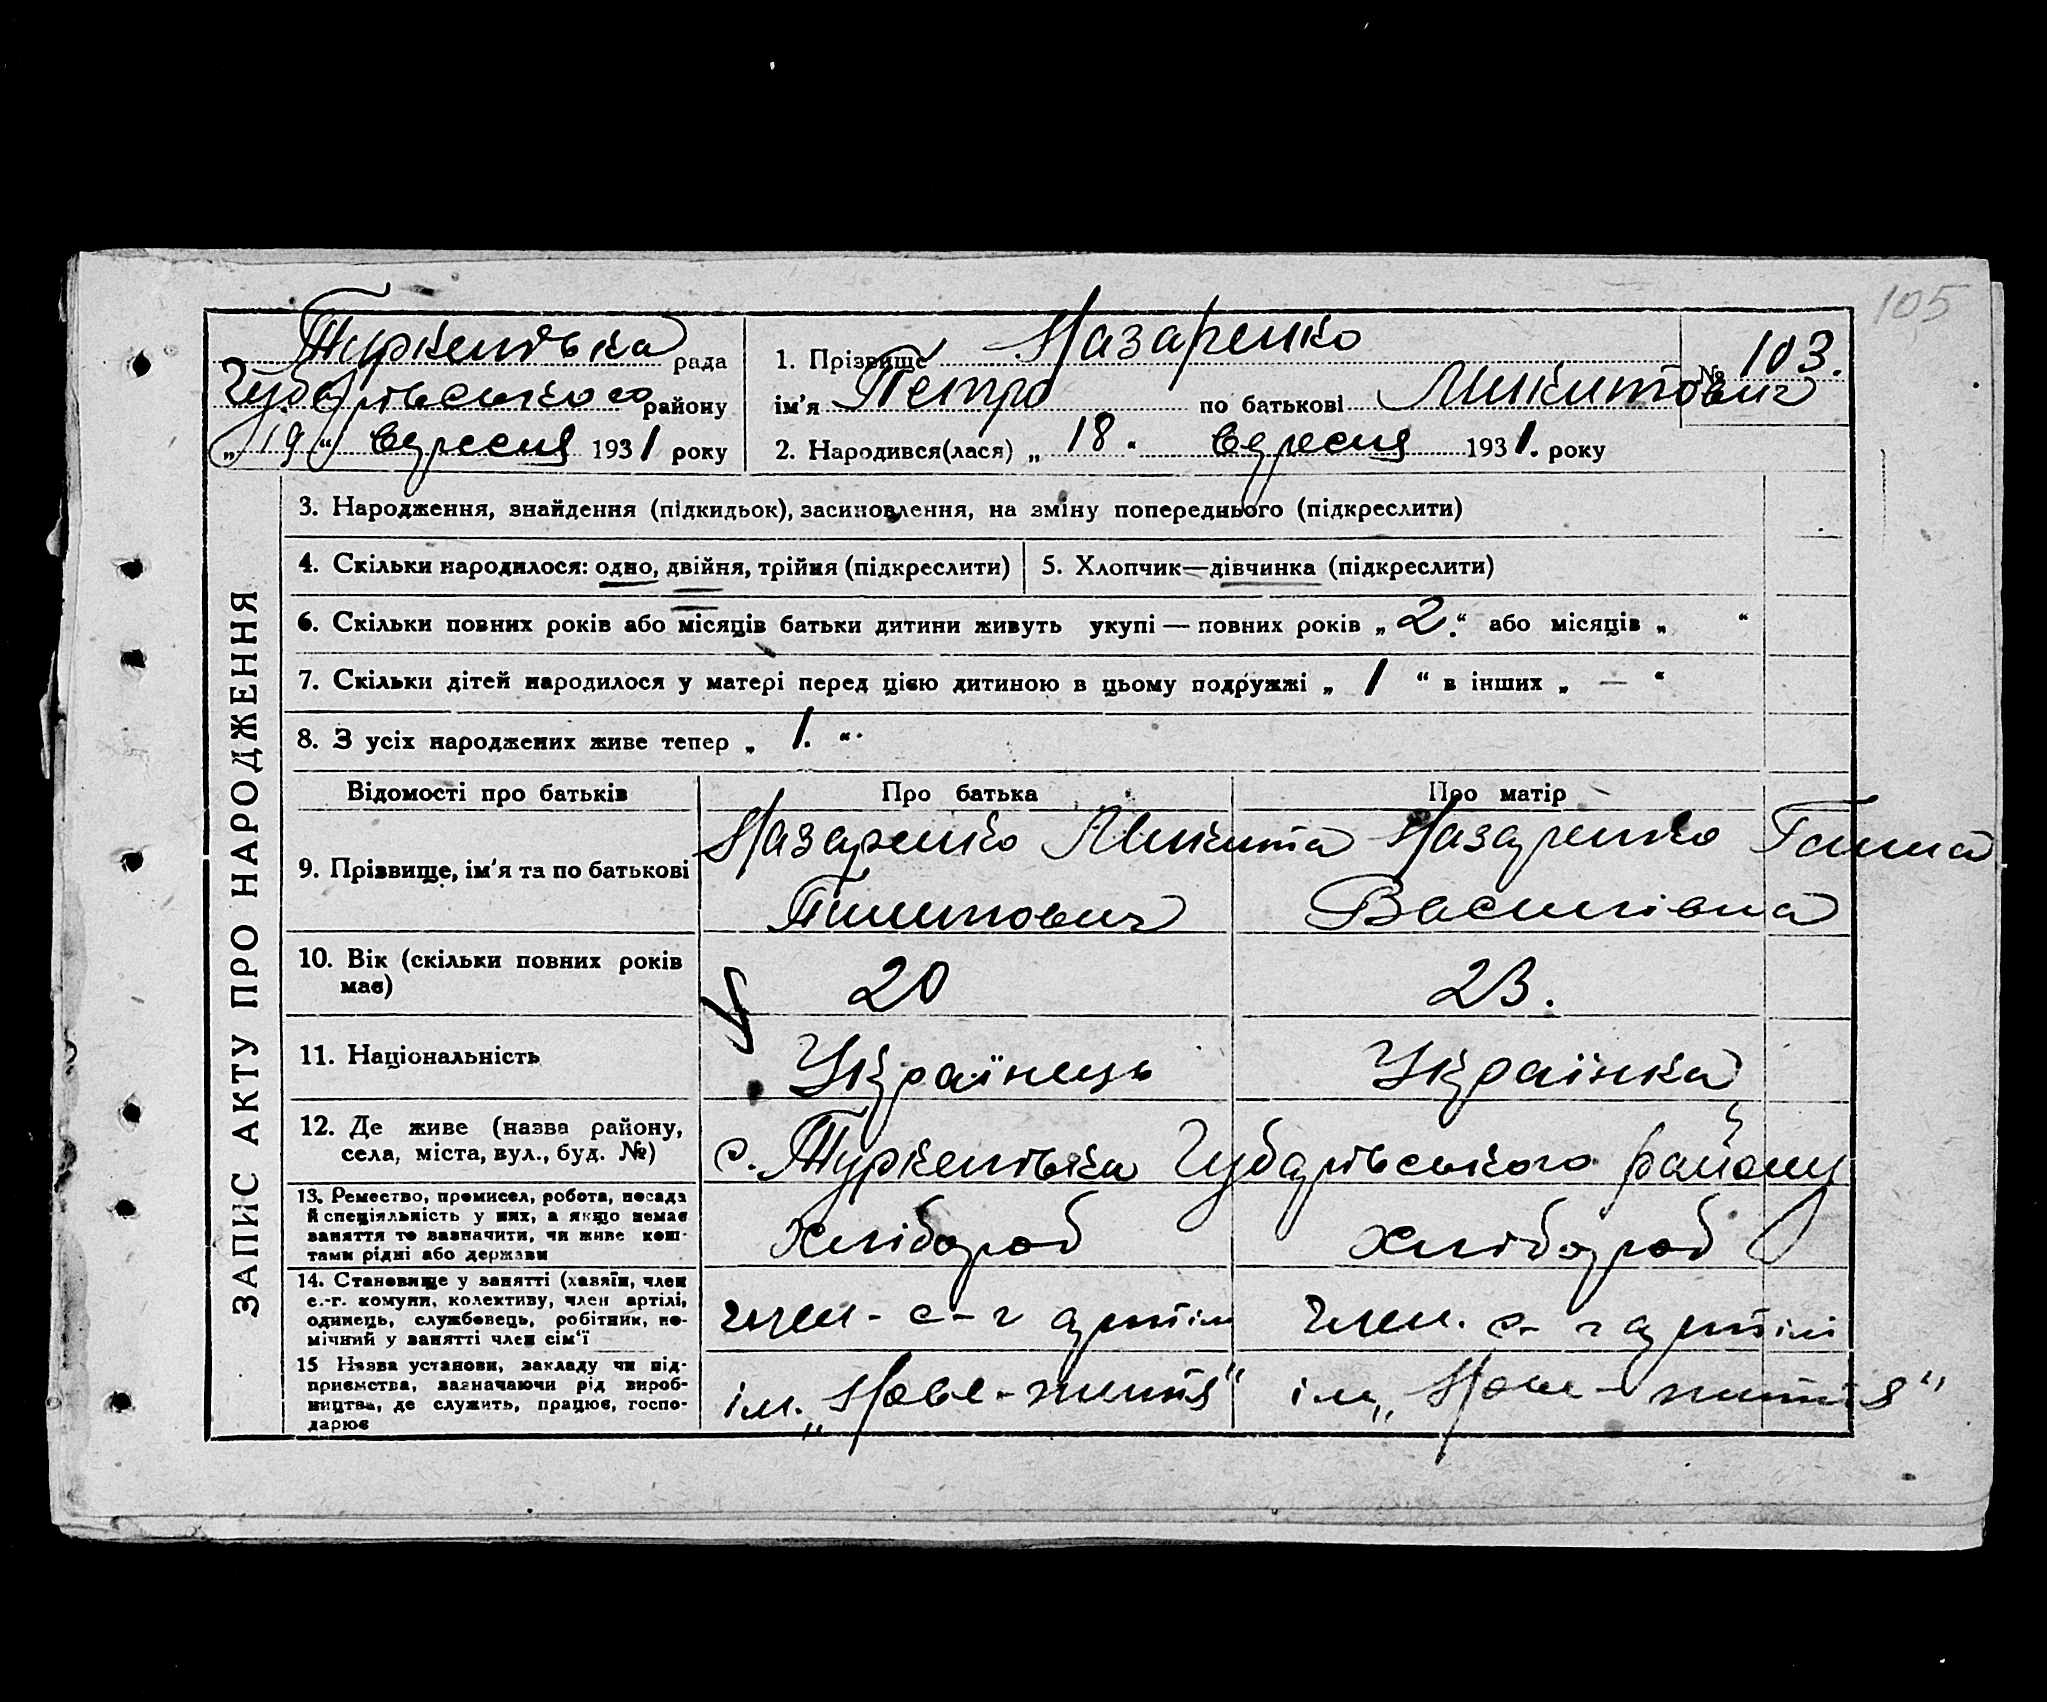 105
Туркенівка рада
Чубарівського району
„19“ вересня 1931 року
1. Прізвище Назаренко
№ 103.
ім'я Петро по батькові Микитович
2. Народився(лася) „ 18. вересня 1931. року
ЗАПИС АКТУ ПРО НАРОДЖЕННЯ
3. Народження, знайдення (підкидьок), засиновлення, на зміну попереднього (підкреслити)
4. Скільки народилося: одно, двійня, трійня (підкреслити)
5. Хлопчик—дівчинка (підкреслити)
6. Скільки повних років або місяців батьки дитини живуть укупі — повних років „ 2.“ або місяців „ “
7. Скільки дітей народилося у матері перед цією дитиною в цьому подружжі „ 1 “ в інших „ — “
8. З усіх народжених живе тепер „ 1. “
Відомості про батьків Про батька Про матір
9. Прізвище, ім'я та по батькові
Назаренко Микита
Назаренко Ганна
Василівна
10. Вік (скільки повних років
має)
20
23.
11. Національність
Українець
Українка
12. Де живе (назва району,
села, міста, вул., буд. №)
с. Туркенівка Чубарівського району
13. Ремество, промисел, робота, посада
й спеціяльність у них, а якщо немає
заняття то зазначити, чи живе кош-
тами рідні або держави
Хлібороб
хлібороб
14. Становище у занятті (хазяїн, член
с.-г. комуни, колективу, член артілі,
одинець, службовець, робітник, по-
мічний у занятті член сім'ї
член - с-г артілі
член. с- г артілі
15 Назва установи, закладу чи під-
приємства, зазначаючи рід вироб-
ництва, де служить, працює, госпо-
дарює
ім. „Нове-життя“
ім „Нове - життя“